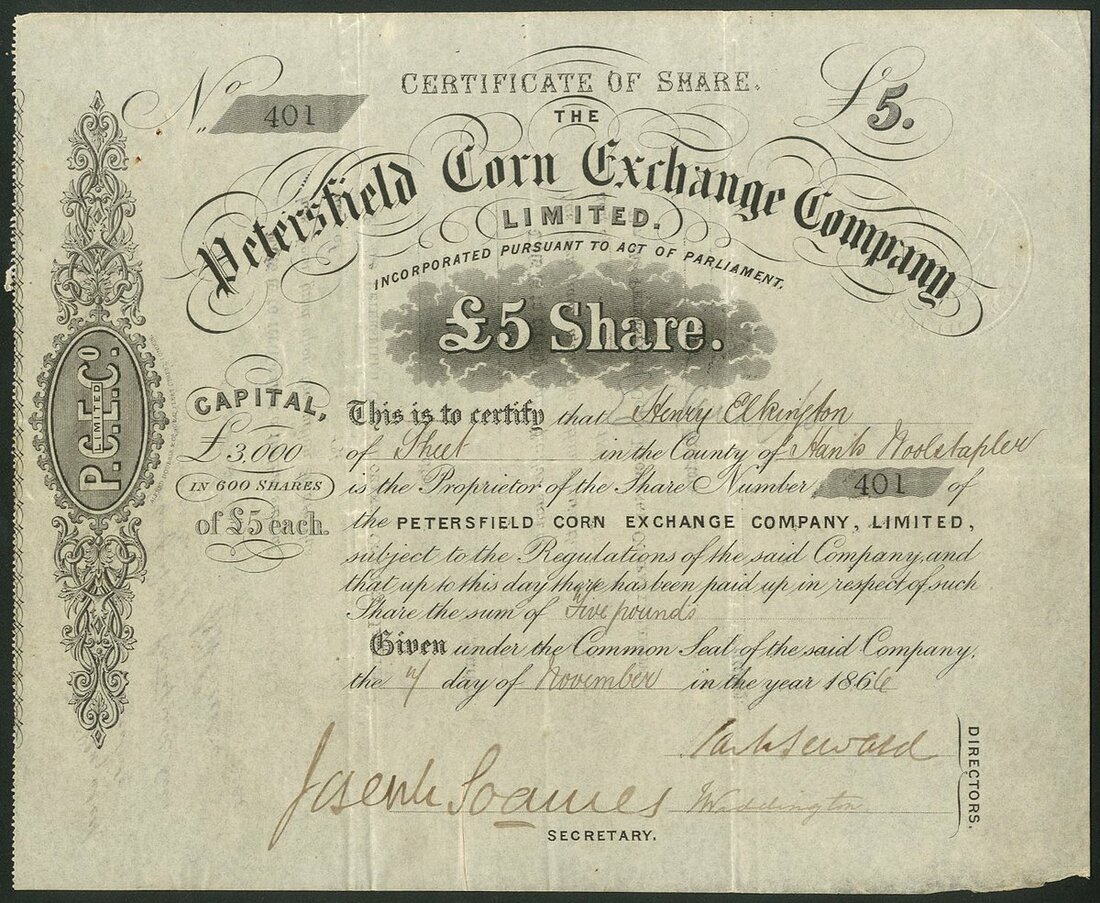 No. 401
CERTIFICATE OF SHARE.
£5.
THE
Petersfield Corn Exchange Company
LIMITED.
INCORPORATED PURSUANT TO ACT OF PARLIAMENT.
£5 Share.
P.C.E.Co.
LIMITED
CAPITAL,
£3,000
IN 600 SHARES
of £5 each.
This is to certify that Henry Elkington
of Sheet in the County of Hants Woolstapler
is the Proprietor of the Share Number 401 of
the PETERSFIELD CORN EXCHANGE COMPANY, LIMITED,
subject to the Regulations of the said Company, and
that up to this day there has been paid up in respect of such
Share the sum of Five pounds
Given under the Common Seal of the said Company,
the day of November in the year 1866
Seward
Joseph Soames Widdington
SECRETARY.
DIRECTORS.